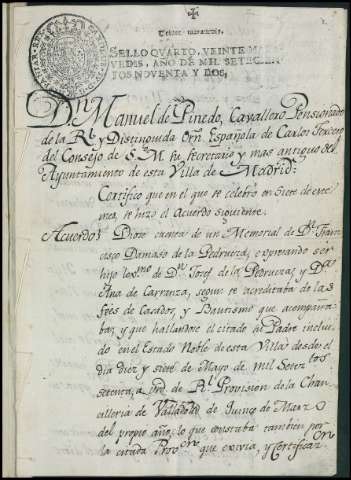 SELLO QVARTO, VEINTE MARA
VEDIS, AÑO DE MIL SETECIEN
TOS NOVENTA Y DOS,
Dn Manuel de Pinedo, Cavallero Pensionado
de la Rl y Distinguida Orn Española de Carlos Tercero
del Consejo de S. M. su Secretario y mas antiguo del
Ayuntamiento de esta Villa de Madrid:
Certifico que en el que se celebró en Siete de este
mes, se hizo el Acuerdo siguiente.
Acuerdo Diose cuenta de un Memorial de Dn Fran
cisco Damaso de la Pedrueza, expresando ser
hijo lexmo de Dn Josef de la Pedrueza y Da
Ana de Carranza, segun se acreditaba de las
fees de Casados, y Bautismo que acompaña
ba; y que hallandose el citado su Padre inclui
do en el Estado Noble de esta Villa desde el
dia diez y siete de Mayo de mil Setectos
setenta, a de Rl Provision de la Chan
cilleria de Valladolid de de Marzo
del propio año, lo que constaba tambien por
la citada Proon que exivia, y Certificaon